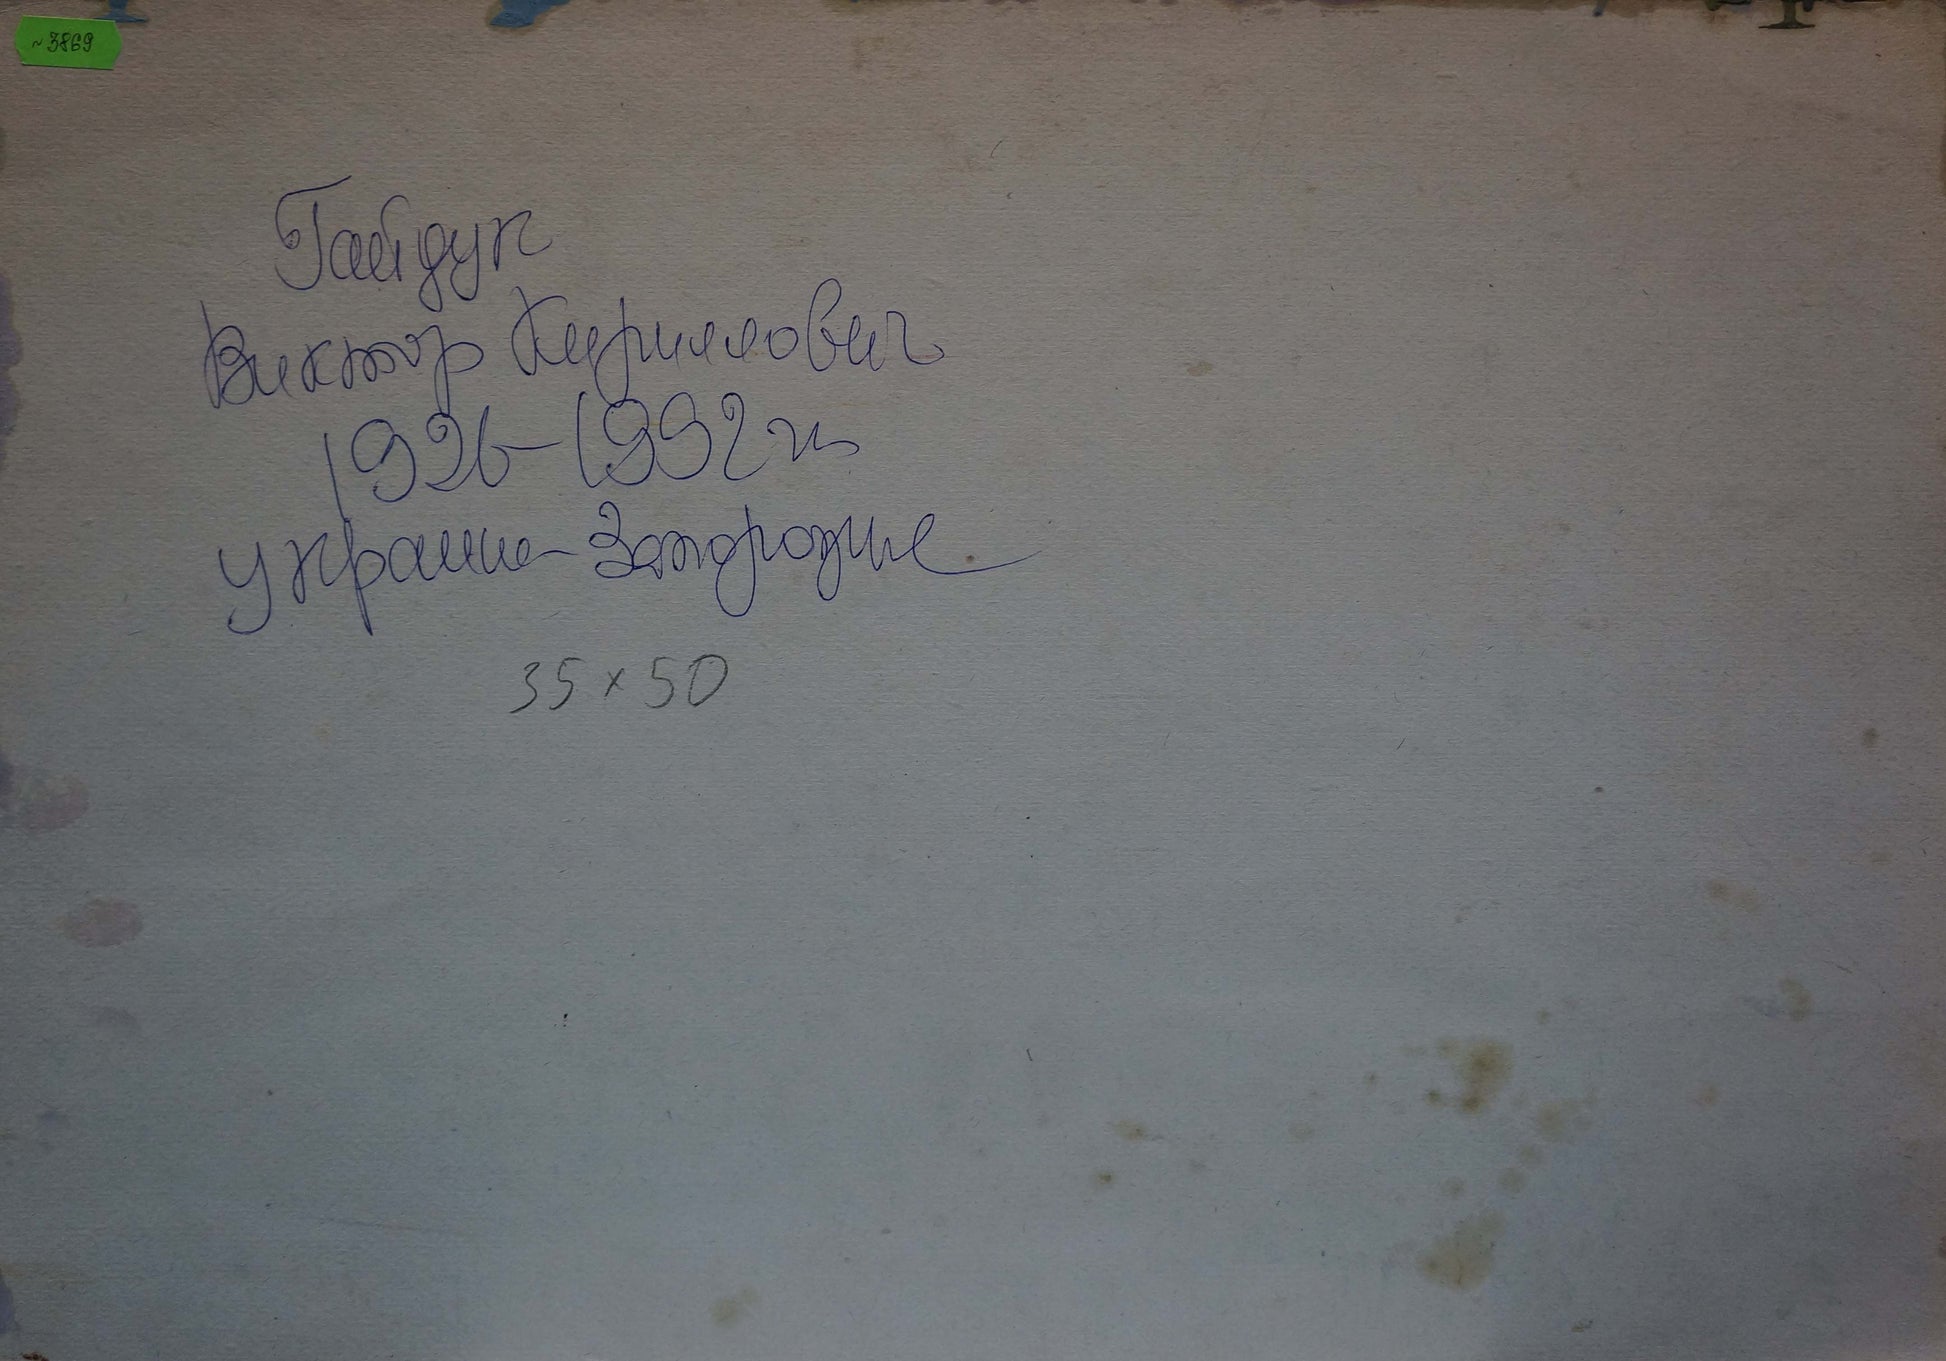 ~3869
Гайдук
Виктор Кириллович
1926-1992 гг
Украина-Запорожье
35 x 50